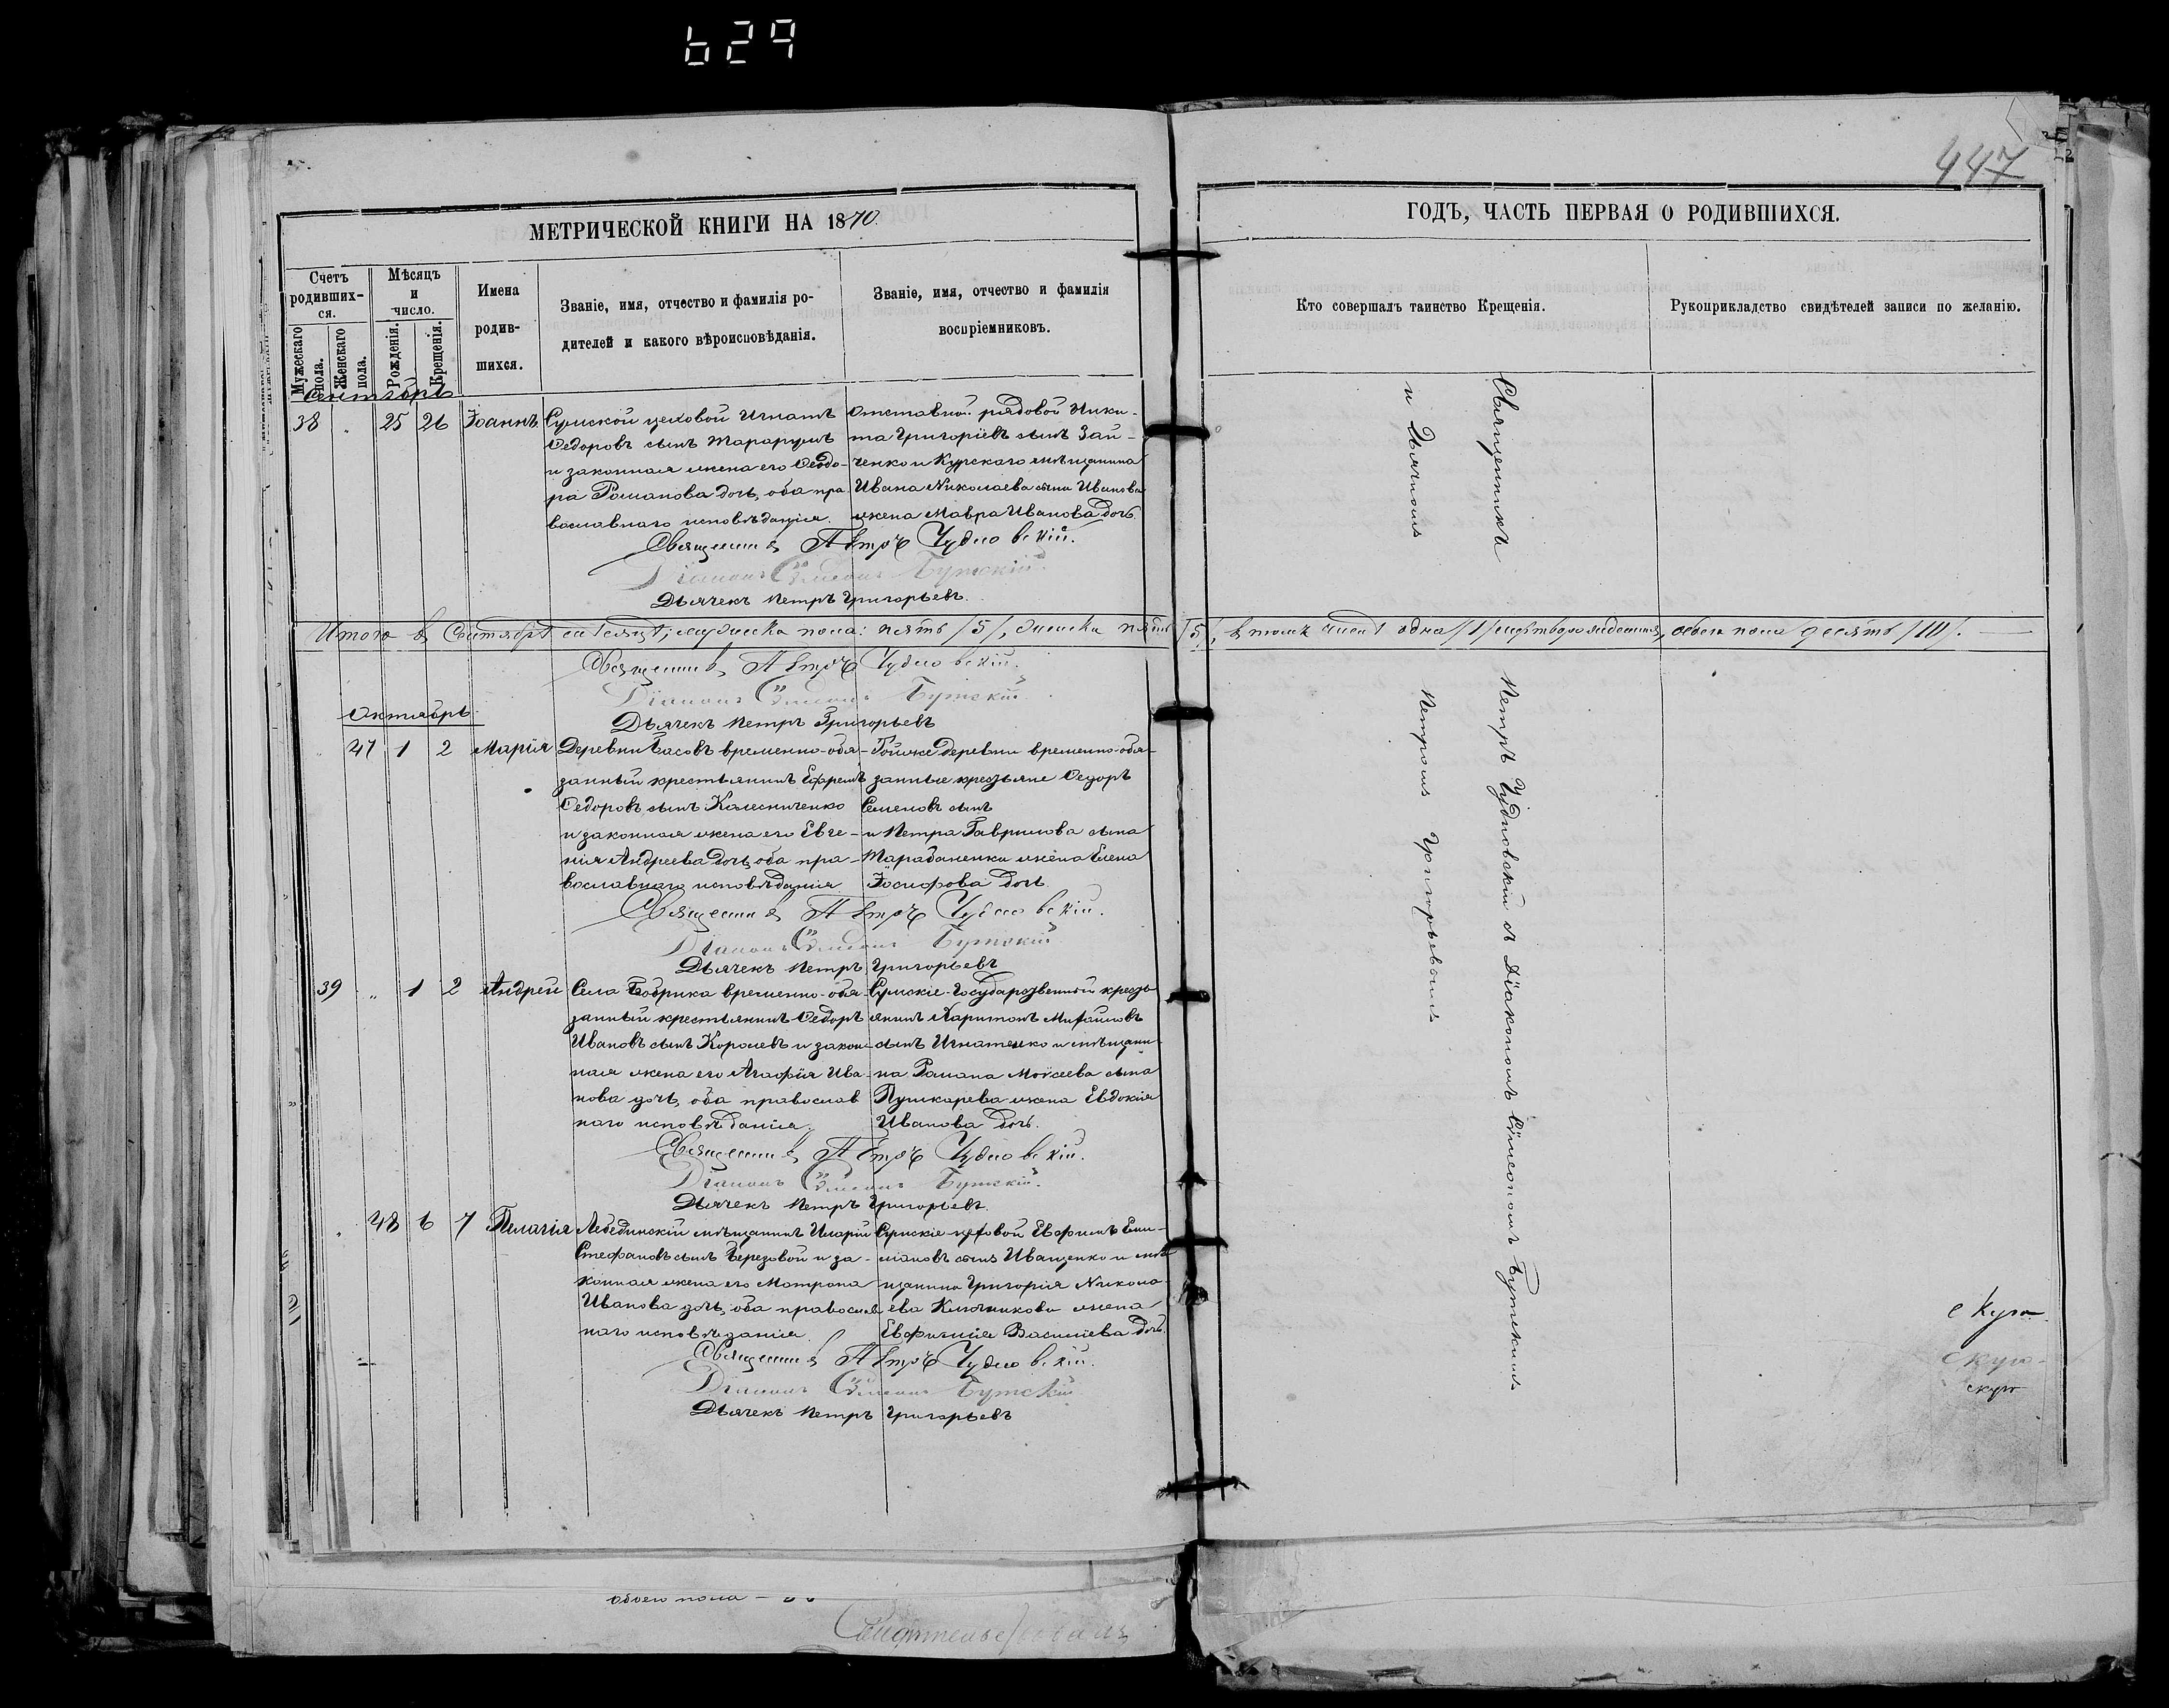 629
447
МЕТРИЧЕСКОЙ КНИГИ НА 1870.
ГОДЪ, ЧАСТЬ ПЕРВАЯ О РОДИВШИХСЯ.
Счетъ родивших-ся.
Мужескаго пола.
Женскаго пола.
Мѣсяцъ и число.
Рожденія.
Крещенія.
Имена родив-шихся.
Званіе, имя, отчество и фамилія ро-
дителей и какого вѣроисповѣданія.
Званіе, имя, отчество и фамилія
воспріемниковъ.
Кто совершалъ таинство Крещенія.
Рукоприкладство свидѣтелей записи по желанію.
Сентябрь
38 " 25 26 Іоаннъ
Сумской цеховой Игнатъ
Ѳедоровъ сынъ
и законная жена его Ѳеодо-
ра Романова дочь, оба пра
вославнаго исповѣданія.
Отставной рядовой Ники-
та Григоріевъ сынъ Зай-
ченко и Курскаго мѣщанина
Ивана Николаева сына Иванова
жена Мавра Иванова дочь.
Священникъ Петръ Чудновскій.
Діаконъ Сѵмеонъ Бутскій.
Дьячекъ Петръ Григорьевъ.
Итого въ Сентябрѣ мѣсяцѣ: мужеска пола: пять /5/, женска пять /5/, въ томъ числѣ одна /1/ обоего пола десять /10/.
Священникъ Петръ Чудновскій.
Діаконъ Сѵмеонъ Бутскій.
Дьячекъ Петръ Григорьевъ
Октябрь
47 1 2 Марія
Деревни Басовъ временно-обя-
занный крестьянинъ Ефремъ
Ѳедоровъ сынъ Колесниченко
и законная жена его Евге-
нія Андреева дочь, оба пра-
вославнаго исповѣданія
Тойже деревни временно-обя-
занные крестьяне Ѳедоръ
Семеновъ сынъ
и Петра Гаврилова сына
Тарабаненка жена Елена
Іосифова дочь
Священникъ Петръ Чудновскій.
Діаконъ Сѵмеонъ Бутскій
Дьячекъ Петръ Григорьевъ
39 " 1 2 Андрей
Села Бобрика временно-обя-
занный крестьянинъ Ѳедоръ
Ивановъ сынъ Королевъ и закон-
ная жена его Агафія Ива-
нова дочь, оба православ
наго исповѣданія.
Сумскіе-Государственной кресть
янинъ Харитонъ Михайловъ
сынъ Игнатенко и мѣщани-
на Романа Моѵсеева сына
Пушкарева жена Евдокія
Иванова дочь.
Священникъ Петръ Чудновскій.
Діаконъ Сѵмеонъ Бутскій.
Дьячекъ Петръ Григорьевъ.
" 48 6 7 Пелагія
Лебединскій мѣщанинъ Иларій
Стефановъ сынъ Березовой и за-
конная жена его Матрона
Иванова дочь, оба православ
наго исповѣданія.
Сумскіе цеховой Евфимъ Еми-
ліановъ сынъ Иващенко и мѣ
щанина Григорія Никола-
ева Ключникова жена
Евфимія Василіева дочь.
Священникъ Петръ Чудновскій.
Діаконъ Сѵмеонъ Бутскій
Дьячекъ Петръ Григорьевъ
Священникъ Петръ Чудновскій съ Діакономъ Сѵмеономъ Бутскимъ
и Дьячкомъ Петромъ Григорьевымъ
скую
скую
скую
обоего пола